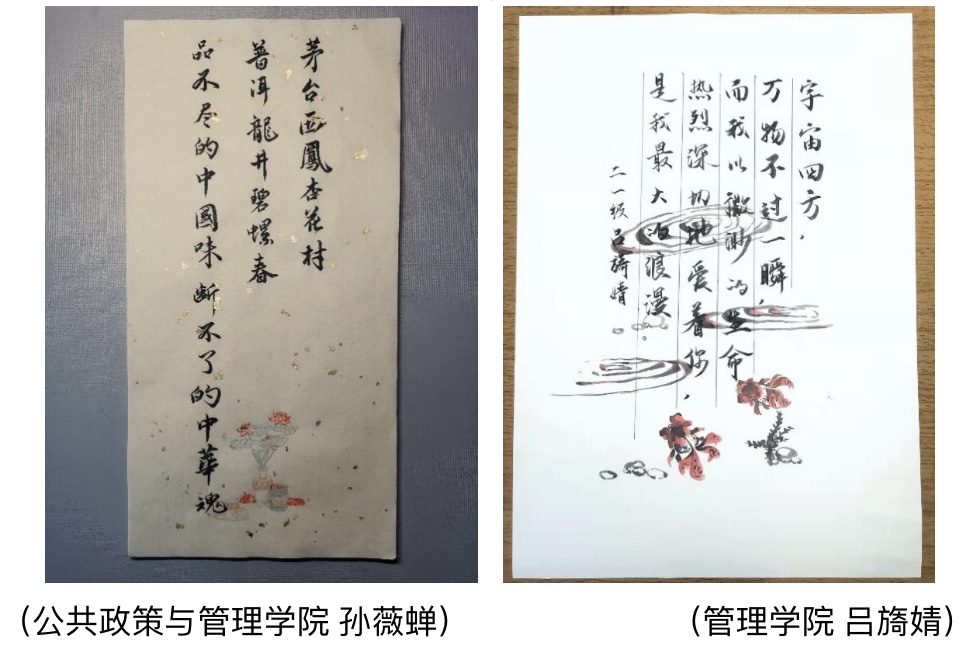 茅台西鳳杏花村
普洱龍井碧螺春
品不尽的中國味 断不了的中華魂
宇宙四方，
万物不过一瞬，
而我以微渺的生命
热烈深切地爱着你，
是我最大的浪漫。
二一级 吕旖婧
（公共政策与管理学院 孙薇蝉）
（管理学院 吕旖婧）